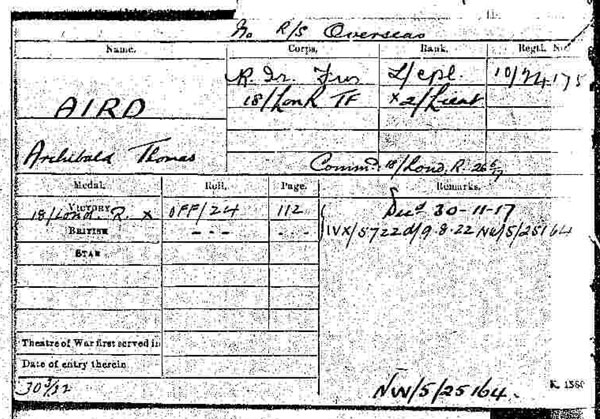 No R/S Overseas
Name. Corps. Rank. Regtl. No.
R. Ir. Fus L/cpl. 10/24175
AIRD 18/Lon R TF x 2/Lieut
Archibald Thomas Commd. 18/Lond. R. 26
Medal. Roll. Page. Remarks.
VICTORY 18/Lond. R. x OFF/24 112 Decd 30-11-17
BRITISH - - - - - - IVX/5722 d/9.8.22 NW/5/25164
STAR
Theatre of War first served in
Date of entry therein
NW/5/25164.
K. 1380